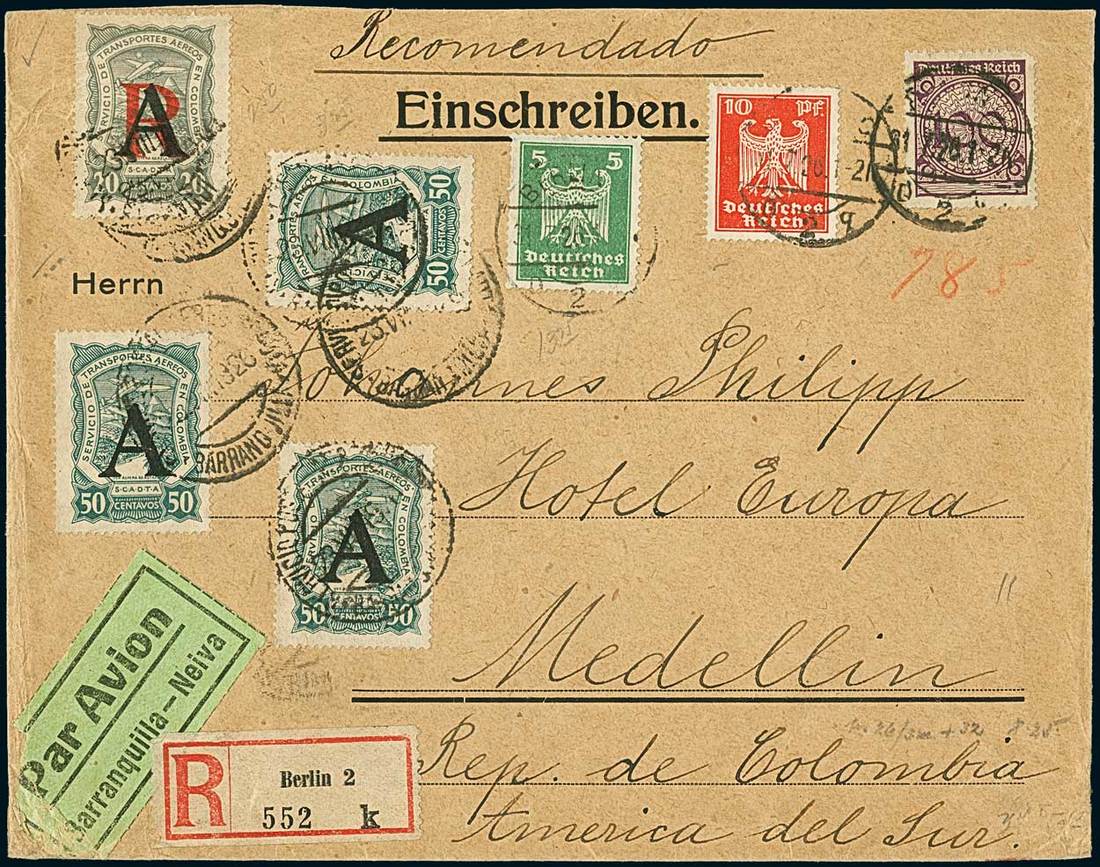 Recomendado
Einschreiben.
SERVICIO DE TRANSPORTES AEREOS EN COLOMBIA
R
A
20 20
CENTAVOS
S·C·A·D·T·A
TRANSPORTES AEREOS EN COLOMBIA
SERVICIO DE
A
50 50
CENTAVOS
5 5
Deutsches
Reich
2
10 Pf.
Deutsches
Reich
2 q
Deutsches Reich
2
78 5
Herrn
Johannes Philipp
SERVICIO DE TRANSPORTES AEREOS EN COLOMBIA
A
S·C·A·D·T·A
50 CENTAVOS 50
BARRANQUILLA
Hotel Europa
SERVICIO DE TRANSPORTES AEREOS EN COLOMBIA
A
50 CENTAVOS 50
Medellin
Par Avion
Barranquilla—Neiva
R
Berlin 2
552 k
Rep. de Colombia
America del Sur.